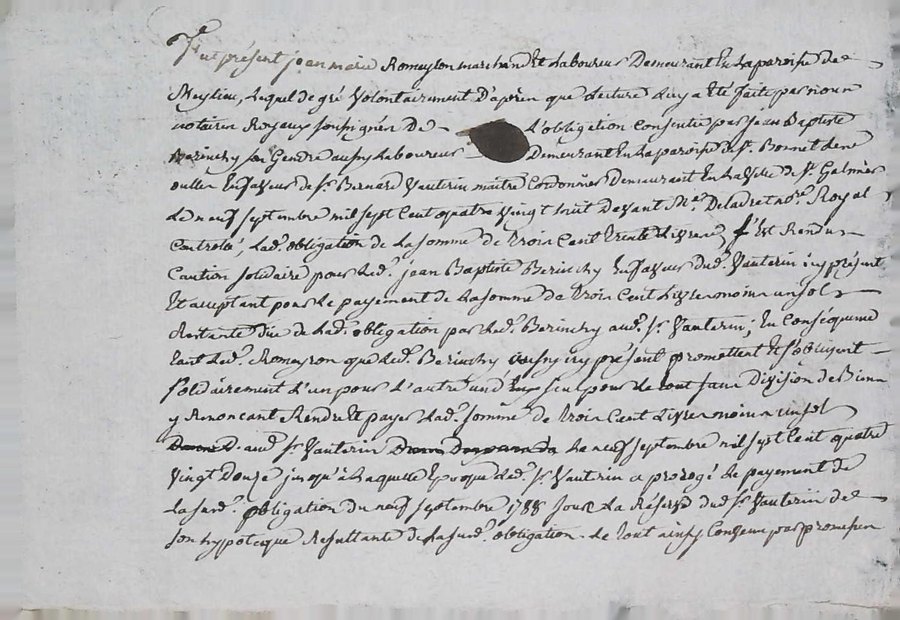 Fut présent jean marie Romeyron marchand Et Laboureur Demeurant En La paroisse de
Meylieu, Lequel de gré Volontairement D'aprèn que Lecture Luy a Eté faite par noun
notairen Royaux soussignén De L'obligation Consentie par jean Baptiste
Berinchy son Gendre aussy Laboureur Demeurant En La paroisse de St. Bonnet Lene
oullen En faveur de Sr. Bernard Vauterin maitre Cordonnier Demeurant En La Ville de St. Galmier
Le neuf septembre mil sept Cent quatre Vingt huit Devant Me. Deladret nore. Royal
Controlé, Lade. obligation de La somme de Troin Cent Trente Livren, s'Est Rendu
Caution solidaire pour Led. jean Baptiste Berinchy En faveur dud. Vauterin icy présent
Et acceptant pour Le payement de La somme de Troin Cent Livren moinn un sol
Restante due de Lade. obligation par Led. Berinchy aud. Sr. Vauterin; En Conséquence
tant Led. Romeyron que Led. Berinchy aussy icy présent promettent Et s'obligent
solidairement L'un pour L'autre un d'Eux seul pour Le tout sann Division de Bienn
y Renoncant Rendre Et payer Lade. somme de Troin Cent Livren moinn un sol
aud. Sr. Vauterin Le neuf septembre mil sept Cent quatre
Vingt Douze jusqu'à Laquelle Epoque Led. Sr. Vauterin a prorogé Le payement de
La susde. obligation du neuf septembre 1788 sour La Réserve dud. Sr. Vauterin de
son hypoteque Resultante de La susde. obligation. Le tout ainsy Convenu par promessen